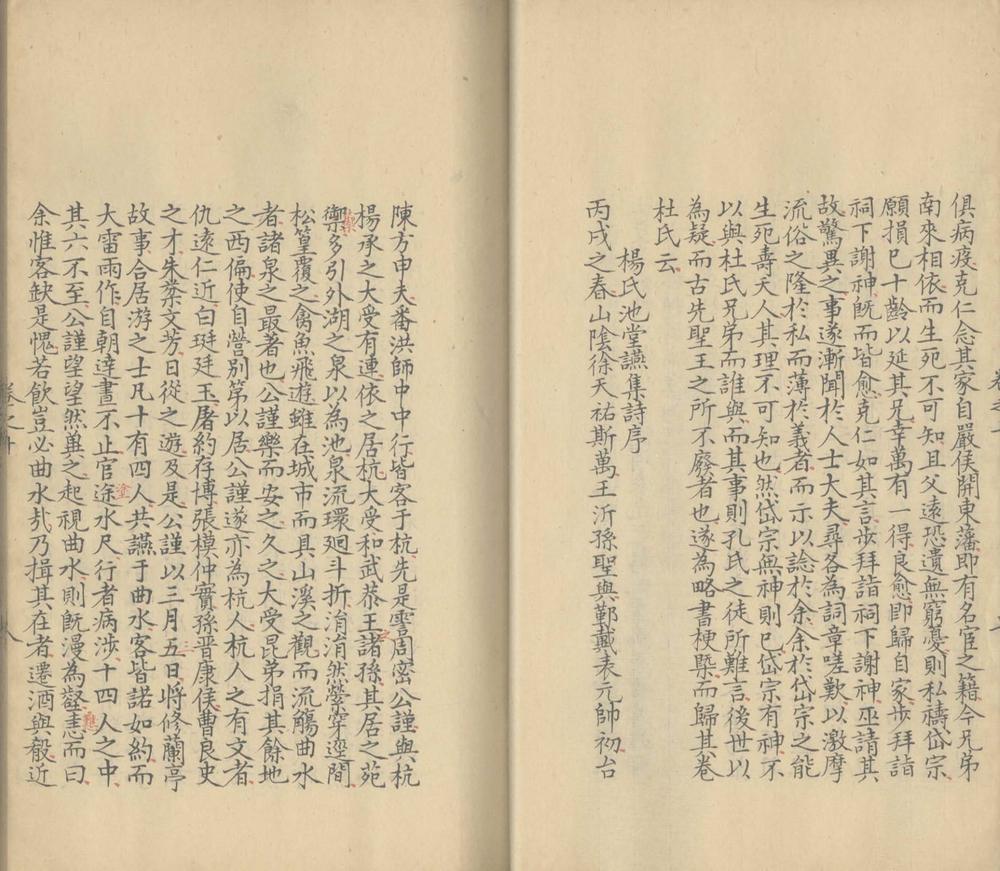 俱病疫克仁念其家自嚴侯開東藩即有名宦之籍今兄弟
南來相依而生死不可知且父遠恐遺無窮憂則私禱岱宗
願損已十齡以延其兄幸萬有一得良愈即歸自家步拜詣
祠下謝神既而皆愈克仁如其言步拜詣祠下謝神巫請其
故驚異之事遂漸聞於人士大夫尋各為詞章嗟歎以激摩
流俗之隆於私而薄於義者而示以諗於余余於岱宗之能
生死壽夭人其理不可知也然岱宗無神則已岱宗有神不
以與杜氏兄弟而誰與而其事則孔氏之徒所難言後世以
為疑而古先聖王之所不廢者也遂為略書梗槩而歸其卷
杜氏云
楊氏池堂讌集詩序
丙戌之春山陰徐天祐斯萬王沂孫聖與鄞戴表元帥初台
陳方申夫番洪師中中行皆客于杭先是霅周密公謹與杭
楊承之大受有連依之居杭大受和武恭王諸孫其居之苑
禦多引外湖之泉以為池泉流環廻斗折涓涓然縈穿逕間
松篁覆之禽魚飛遊雖在城市而具山溪之觀而流觴曲水
者諸泉之最著也公謹樂而安之久之大受昆弟捐其餘地
之西偏使自營别第以居公謹遂亦為杭人杭人之有文者
仇遠仁近白珽廷玉屠約存博張楧仲實孫晋康侯曹良史
之才朱棻文芳日從之遊及是公謹以三月五日將修蘭亭
故事合居游之士凡十有四人共讌于曲水客皆諾如約而
大雷雨作自朝達晝不止官途水尺行者病涉十四人之中
其六不至公謹望望然兾之起視曲水則既漫為壑恚而曰
余惟客缺是愧若飲豈必曲水㢤乃揖其在者遷酒與殽近